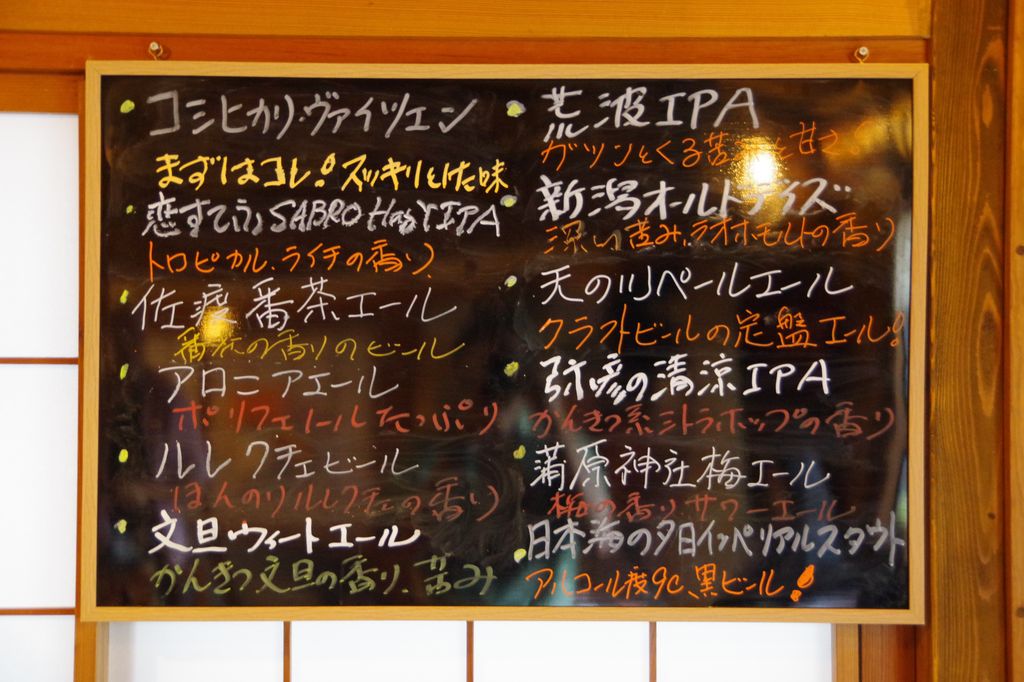 コシヒカリ・ヴァイツェン
まずはコレ!スッキリとした味
恋すてふ SABRO Hazy IPA
トロピカル、ライチの香り
佐渡番茶エール
番茶の香りのビール
アロニアエール
ポリフェノールたっぷり
ルレクチェビール
ほんのりルレクチェの香り
文旦ウィートエール
かんきつ文旦の香り、苦み
荒波IPA
ガツンとくる苦
新潟オールドライズ
深い苦み、ラオホモルトの香り
天の川ペールエール
クラフトビールの定盤エール!
弥彦の清涼IPA
かんきつ系シトラホップの香り
蒲原神社梅エール
梅の香り、サワーエール
日本海の夕日インペリアルスタウト
アルコール度9%、黒ビール!